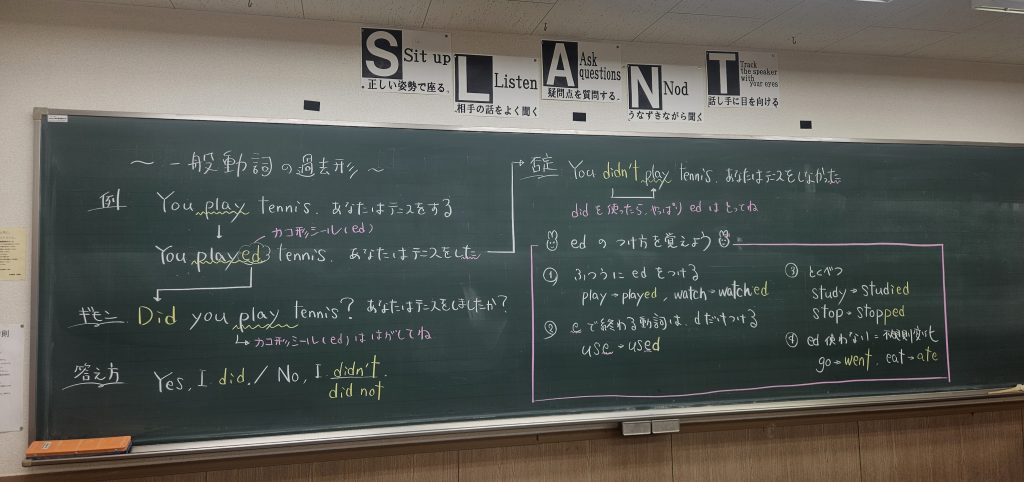 S Sit up
正しい姿勢で座る。
L Listen
相手の話をよく聞く
A Ask questions
疑問点を質問する。
N Nod
うなずきながら聞く
T Track the speaker with your eyes
話し手に目を向ける
〜一般動詞の過去形〜
例 You play tennis. あなたはテニスをする
カコ形シール(ed)
You played tennis. あなたはテニスをした
ギモン Did you play tennis? あなたはテニスをしましたか?
カコ形シール(ed)ははがしてね
答え方 Yes, I did. / No, I didn't.
did not
否定 You didn't play tennis. あなたはテニスをしなかった
did を使ったら、やっぱり ed はとってね
ed のつけ方を覚えよう
① ふつうに ed をつける
play→played, watch→watched
② e で終わる動詞は、dだけつける
use→used
③ とくべつ
study→studied
stop→stopped
④ ed 使わない=不規則変化
go→went, eat→ate